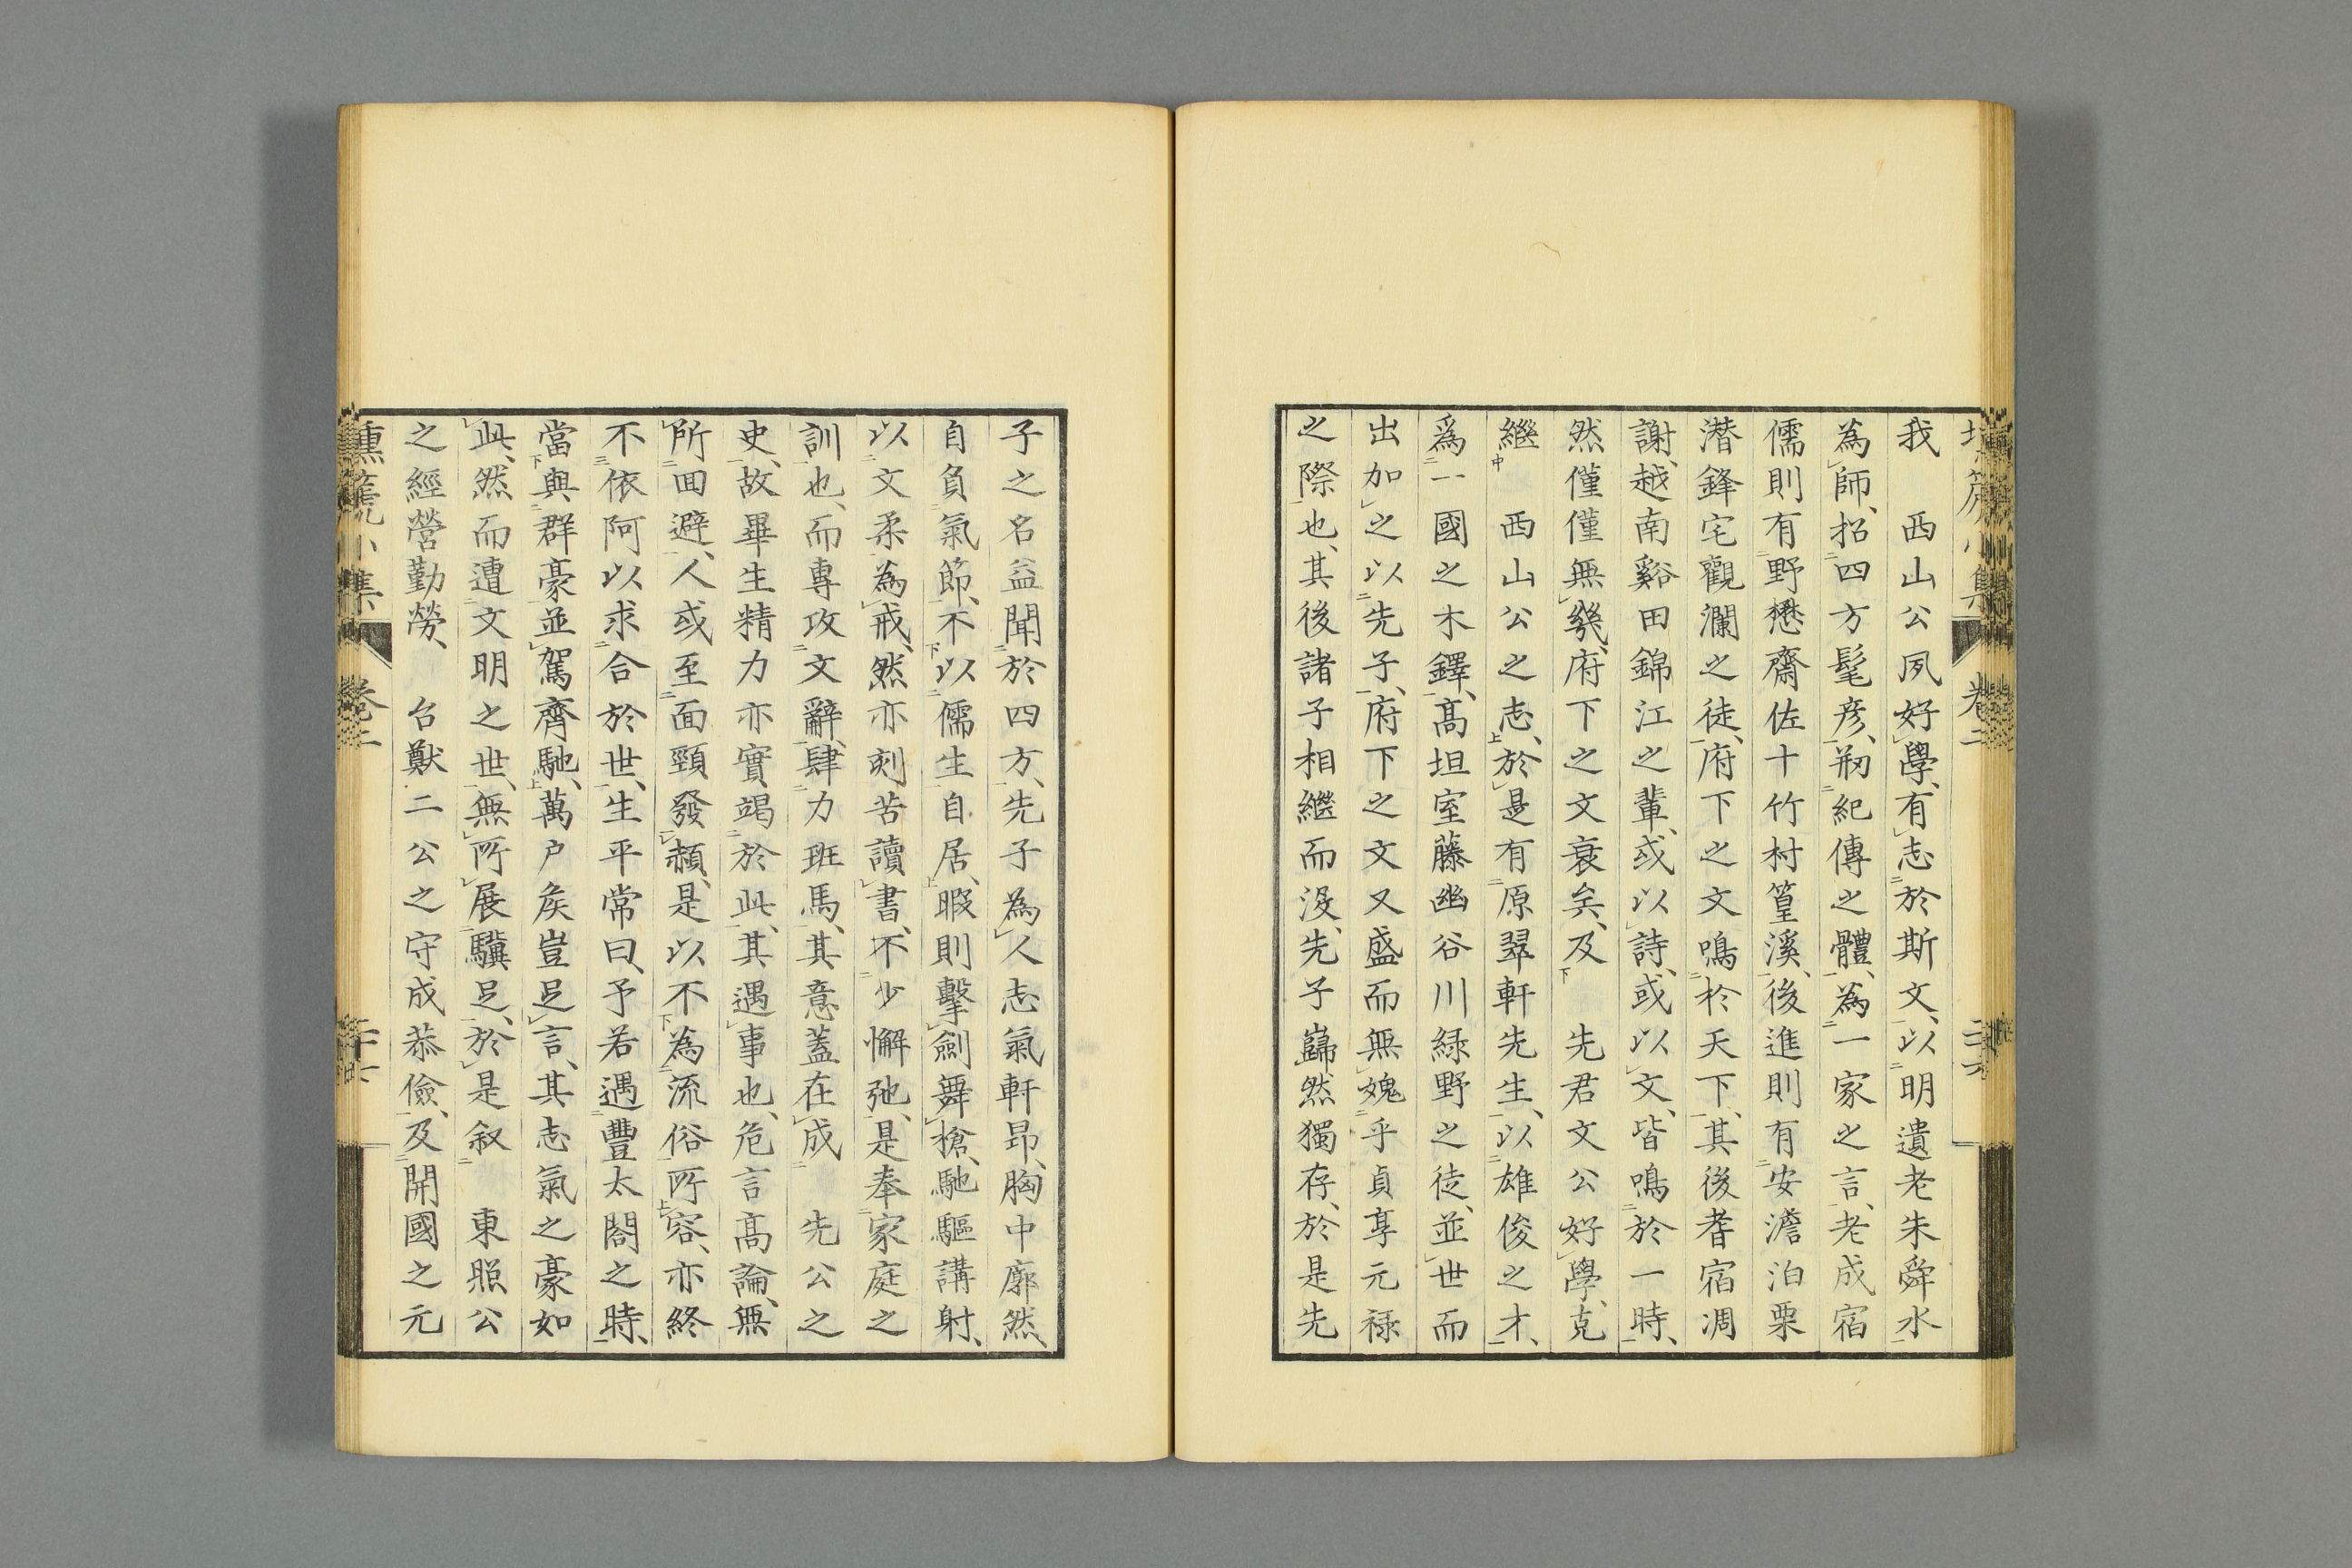 我　西山公夙好學、有志於斯文、以明遺老朱舜水
為師、招四方髦彦、剏紀傳之體、為一家之言、老成宿
儒則有野懋齋佐十竹村篁溪、後進則有安澹泊栗
潜鋒宅觀瀾之徒、府下之文鳴於天下、其後耆宿凋
謝、越南谿田錦江之輩、或以詩、或以文、皆鳴於一時、
然僅僅無幾、府下之文衰矣、及　先君文公好學、克
繼　西山公之志、於是有原翠軒先生、以雄俊之才、
爲一國之木鐸、高坦室藤幽谷川緑野之徒、並世而
出加之以先子、府下之文又盛而無媿乎貞享元禄
之際也、其後諸子相繼而没、先子巋然獨存、於是先
子之名益聞於四方、先子為人志氣軒昂、胸中廓然、
自負氣節、不以儒生自居、暇則擊劍舞槍、馳驅講射、
以文柔為戒、然亦刻苦讀書、不少懈弛、是奉家庭之
訓也、而專攻文辭、肆力班馬、其意蓋在成　先公之
史、故畢生精力亦實竭於此、其遇事也、危言高論、無
所回避、人或至面頸發赬、是以不為流俗所容、亦終
不依阿以求合於世、生平常曰、予若遇豐太閤之時、
當與群豪並駕齊馳、萬户矦豈足言、其志氣之豪如
此、然而遭文明之世、無所展驥足、於是叙　東照公
之經營勤勞、　台猷二公之守成恭儉、及開國之元
壎篪小集　卷二